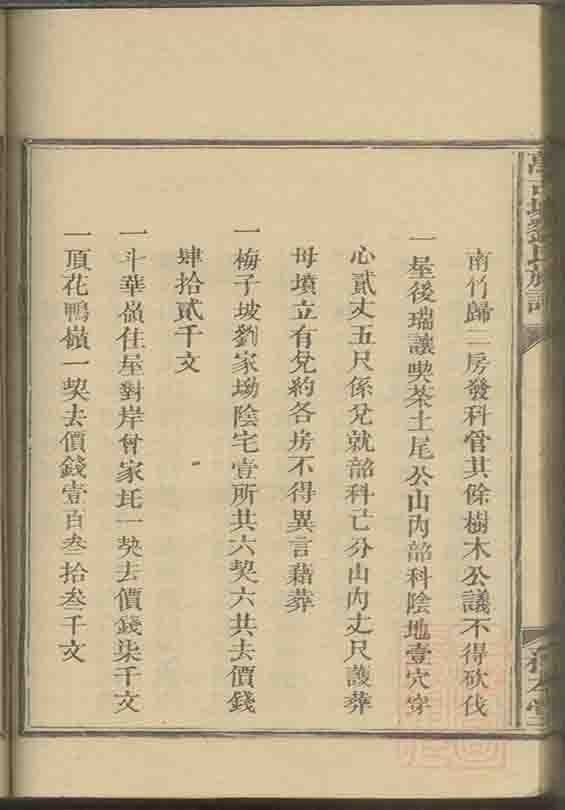 南竹歸二房發科管其餘樹木公議不得砍伐
一屋後瑞讓喫茶土尾公山內韶科陰地壹穴穿
心貳丈五尺係兌就韶科己分山內丈尺護葬
母墳立有兌約各房不得異言藉葬
一梅子坡劉家坳陰宅壹所共六契六共去價錢
肆拾貳千文
一斗華嶺住屋對岸曾家坵一契去價錢柒千文
一頂花鴨嶺一契去價錢壹百叁拾叁千文
劉氏族譜